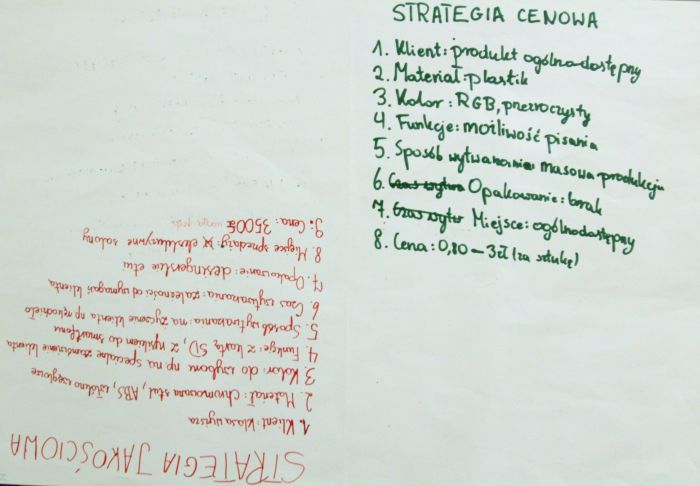 STRATEGIA CENOWA
1. Klient: produkt ogólnodostępny
2. Materiał: plastik
3. Kolor: RGB, przezroczysty
4. Funkcje: możliwość pisania
5. Sposób wytwarzania masowa produkcja
6. Czas wytw Opakowanie: brak
7. Czas wytw Miejsce: ogólnodostępny
8. Cena: 0,80 - 3zł (za sztukę)
STRATEGIA JAKOŚCIOWA
1. Klient: klasa wyższa
2. Materiał: chromowana stal, ABS, włókno węglowe
3 Kolor: do wyboru np na specjalne zamówienie klienta
4. Funkcje: z kartą SD, z rysikiem do smartfonu
5. Sposób wytwarzania: na życzenie klienta np rękodzieło
6. Czas wytwarzania: zależności od wymagań klienta
7. Opakowanie: designerskie etui
8. Miejsce sprzedaży: ekskluzywne salony
9. Cena: 3500zł